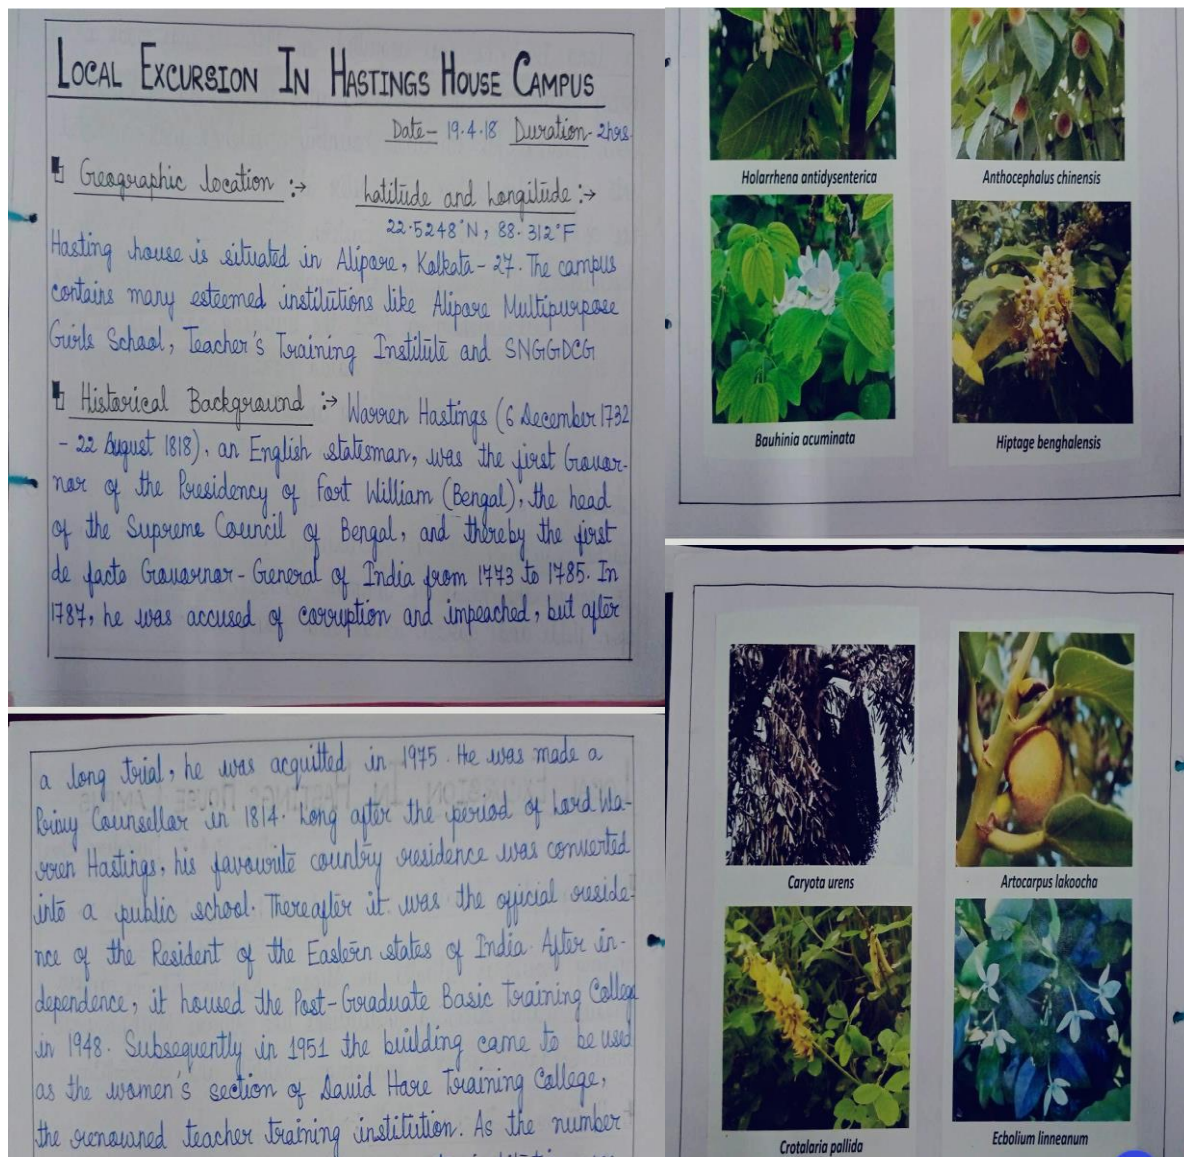 LOCAL EXCURSION IN HASTINGS HOUSE CAMPUS
Date- 19.4.18 Duration- 2hrs.
Geographic location :→ Latitude and Longitude :→
22.5248°N, 88.312°F
Hasting house is situated in Alipore, Kolkata-27. The campus
contains many esteemed institutions like Alipore Multipurpose
Girls School, Teacher's Training Institute and SNGGDCG
Historical Background :→ Warren Hastings (6 December 1732
- 22 August 1818), an English statesman, was the first Gover-
nor of the Presidency of Fort William (Bengal), the head
of the Supreme Council of Bengal, and thereby the first
de facto Governor-General of India from 1773 to 1785. In
1787, he was accused of corruption and impeached, but after
a long trial, he was acquitted in 1975. He was made a
Privy Counsellor in 1814. Long after the period of Lord Wa-
rren Hastings, his favourite country residence was converted
into a public school. Thereafter it was the official reside-
nce of the Resident of the Eastern states of India. After in-
dependence, it housed the Post-Graduate Basic Training College
in 1948. Subsequently in 1951 the building came to be used
as the women's section of David Hare Training College,
the renowned teacher training institution. As the number
Holarrhena antidysenterica
Anthocephalus chinensis
Bauhinia acuminata
Hiptage benghalensis
Caryota urens
Artocarpus lakoocha
Crotalaria pallida
Ecbolium linneanum